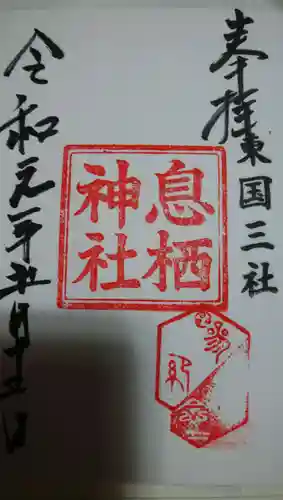 奉拝東国三社
息栖
神社
令和元年五月十五日